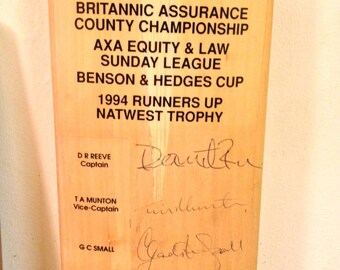 BRITANNIC ASSURANCE
COUNTY CHAMPIONSHIP
AXA EQUITY & LAW
SUNDAY LEAGUE
BENSON & HEDGES CUP
1994 RUNNERS UP
NATWEST TROPHY
D R REEVE
Captain
T A MUNTON
Vice-Captain
G C SMALL